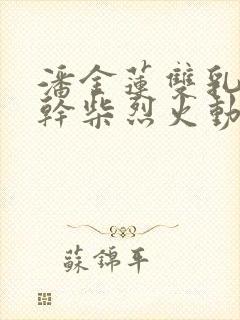 潘金蓮雙乳
幹柴烈火動
蘇錦平